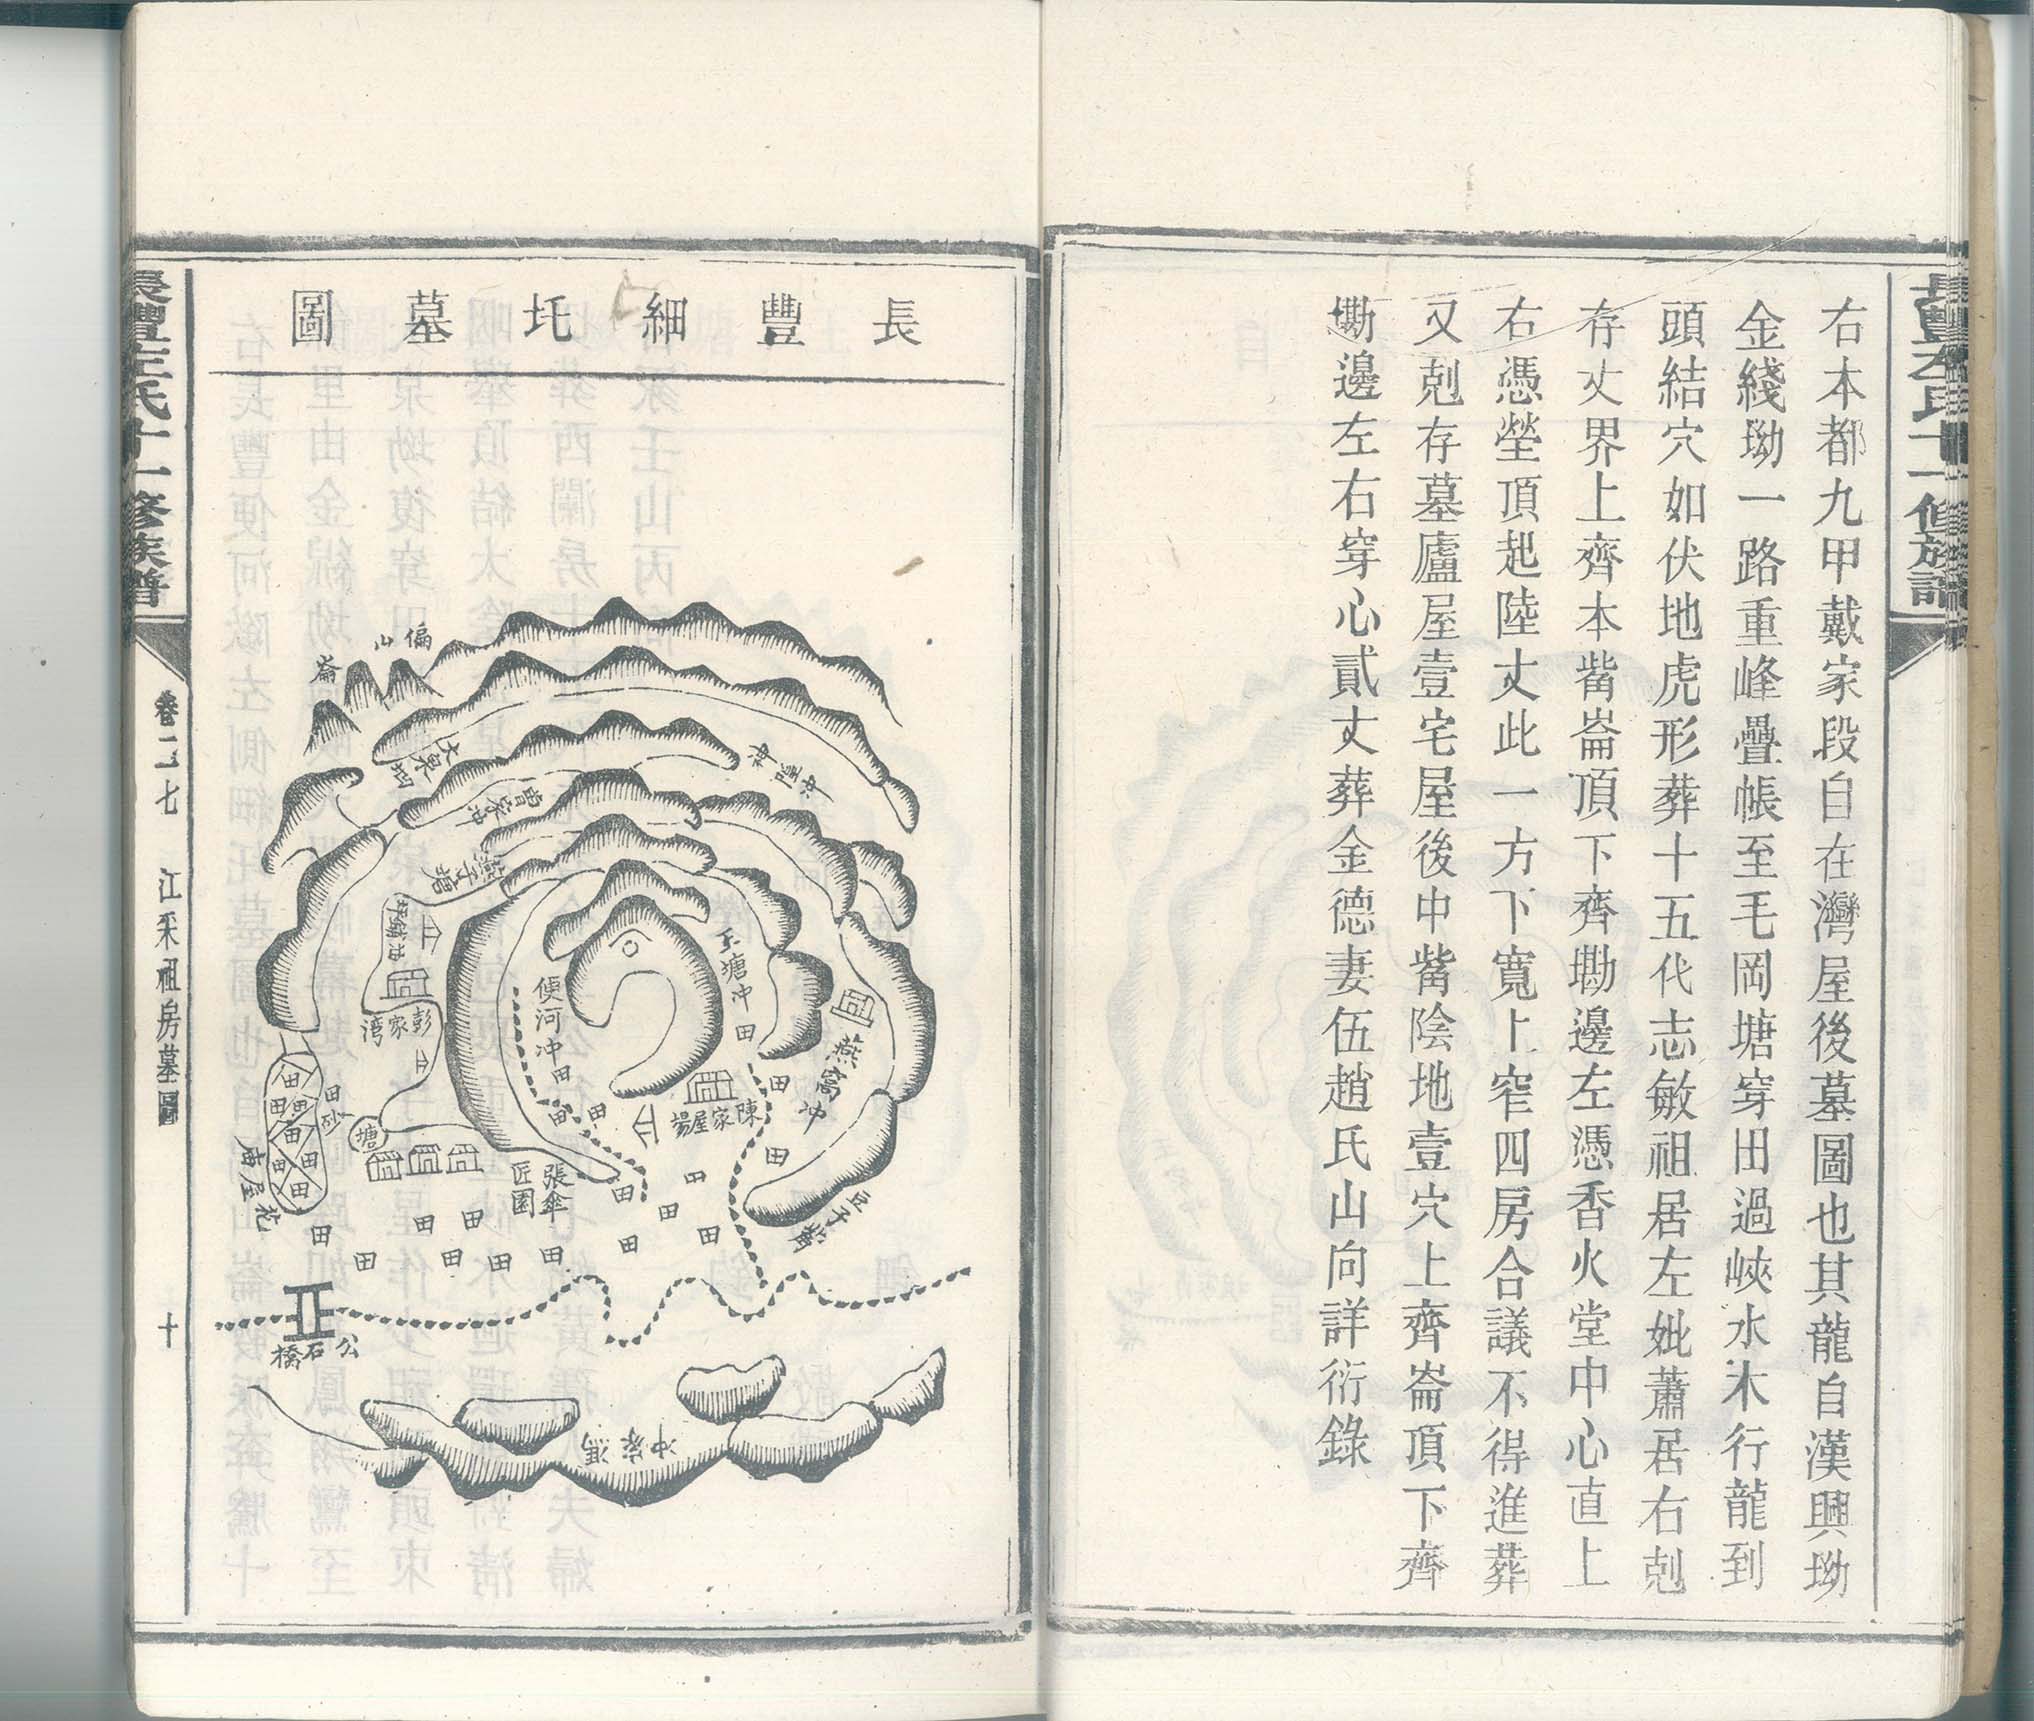 長豐左氏十一修族譜
右本都九甲戴家段自在灣屋後墓圖也其龍自漢興坳
金綫坳一路重峰疊帳至毛岡塘穿田過峽水木行龍到
頭結穴如伏地虎形葬十五代志敏祖居左妣蕭居右剋
存丈界上齊本嵴崙頂下齊墈邊左憑香火堂中心直上
右憑塋頂起陸丈此一方下寬上窄四房合議不得進葬
又剋存墓廬屋壹宅屋後中嵴陰地壹穴上齊崙頂下齊
墈邊左右穿心貳丈葬金德妻伍趙氏山向詳衍錄
長豐細圫墓圖
偏山
崙
大泉坳
曾家冲
燕子塘
彭家湾
田砂
塘
花屋庙
便河冲
玉塘冲
燕窩冲
陳家屋場
張傘匠園
豆子
公石橋
馮家冲
田
長豐左氏十一修族譜
卷二七
江釆祖房墓圖
十